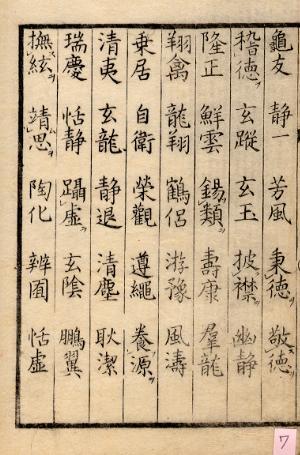 龜友 静一 芳風 秉德 敬德
稽德 玄蹤 玄玉 披襟 幽静
隆正 鮮雲 錫類 壽康 羣龍
翔禽 龍翔 鶴侶 游豫 風濤
乗居 自衛 榮觀 遵繩 養源
清夷 玄龍 静退 清塵 耿潔
瑞慶 恬静 躡虛 玄陰 鵬翼
撫絃 靖思 陶化 辨囿 恬虛
7